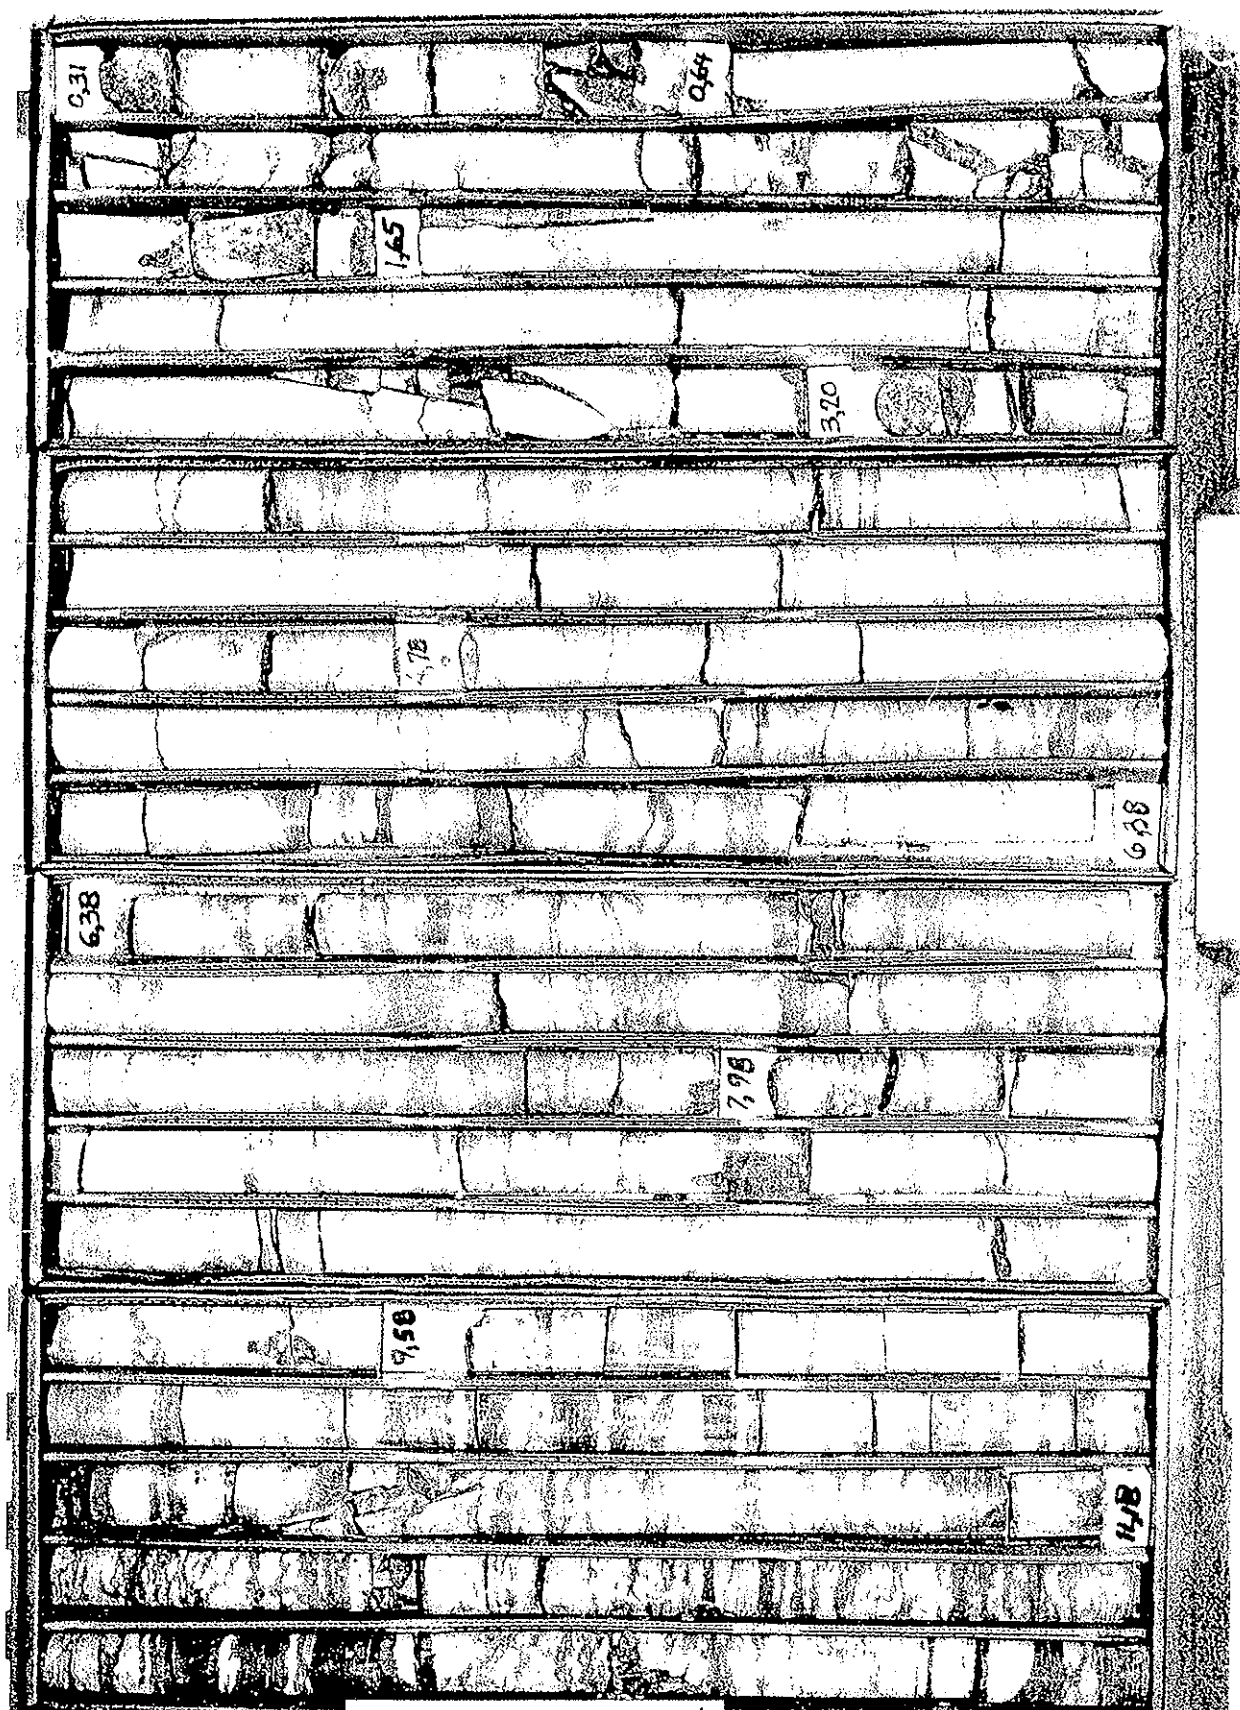 0,31
0,64
1,65
3,20
4,78
6,38
6,38
7,98
9,58
11,18